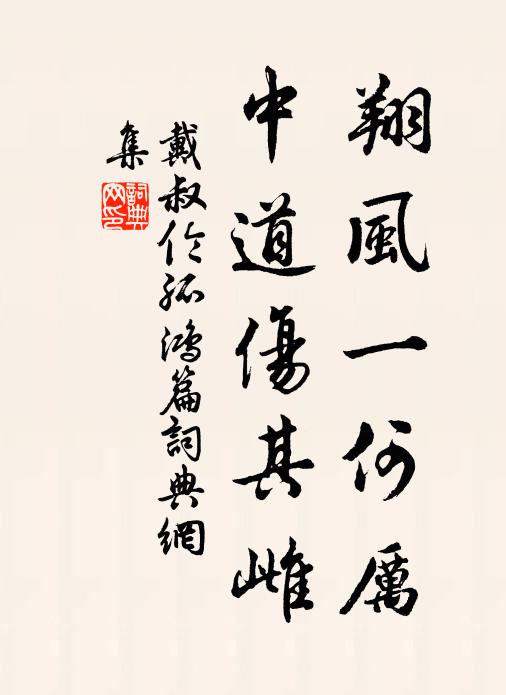 翔風一何厲
中道傷其雌
戴叔倫孤鴻篇詞典網
集
詞典网印